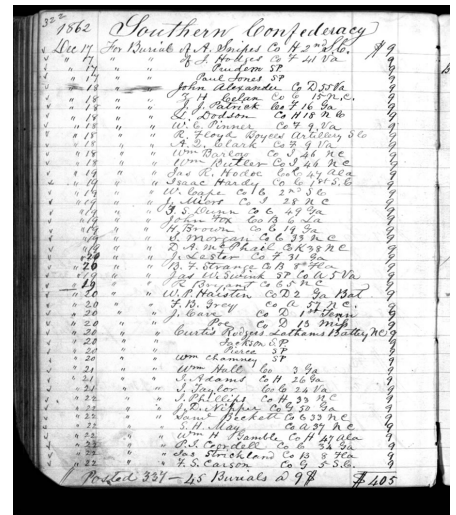 322
1862 Southern Confederacy
Dec 17 For Burial of A. Snipes Co H 2nd S.C. $9
" 17 " " of J. Hodges Co F 41 Va 9
" 17 " " Prudem SP 9
" 17 " " Paul Jones SP 9
" 18 " " John Alexander Co D 55 Va 9
" 18 " " Co C 15 N.C. 9
" 18 " " J. J. Patrick Co F 16 Ga 9
" 18 " " L. Dodson Co H 18 N C 9
" 18 " " W. C. Pinner Co F 9 Va 9
" 18 " " R. Floyd Artillery S Co 9
" 18 " " A. L. Clark Co F 9 Va 9
" 18 " " Wm Barlow Co I 46 NC 9
" 18 " " Wm Butler Co I 46 NC 9
" 19 " " Jas R. Hodoc Co C 47 Ala 9
" 19 " " Isaac Hardy Co C 1st S.C 9
" 19 " " W. Cape Co C 2nd S.C 9
" 19 " " J. Miors Co I 28 NC 9
" 19 " " F. S. Dunn Co C 49 Ga 9
" 19 " " John Fox Co B 6 La 9
" 19 " " H. Brown Co G 19 Ga 9
" 19 " " S. Morgan Co G 33 NC 9
" 19 " " D. A. McPhail Co K 38 NC 9
" 20 " " J. Lester Co F 31 Ga 9
" 20 " " B. F. Strange Co B 8th Fla 9
" 19 " " Jas W. Swink SP Co A 5 Va 9
" 19 " " R Bryant Co G 5 NC 9
" 20 " " W. P. Haistin Co D 2 Ga Bat 9
" 20 " " F. B. Grey Co A 57 NC. 9
" 20 " " J. Cave Co D 1st Tenn 9
" 20 " " Poe Co D 13 Miss 9
" 20 " " Curtis Rodgers Lathams Battery NC 9
" 20 " " Jackson S.P 9
" 20 " " Pierce SP 9
" 20 " " Wm Chamney SP 9
" 21 " " Wm Hall Co 3 Ga 9
" 21 " " J. Adams Co H 26 Ga 9
" 21 " " J. Taylor Co C 24 Va 9
" 22 " " J. Phillips Co H 33 NC 9
" 22 " " J. D. Nipper Co G 50 Ga 9
" 22 " " Saml Beckett Co G 33 NC 9
" 22 " " S. H. May Co A 37 NC 9
" 22 " " Wm H Gamble Co H 47 Ala 9
" 22 " " P. T. Co C 34 Ga 9
" 22 " " Jas Strickland Co B 8 Fla 9
" 22 " " F. S. Carson Co G 5 S.C. 9
Posted 337 - 45 Burials @ 9$ $405